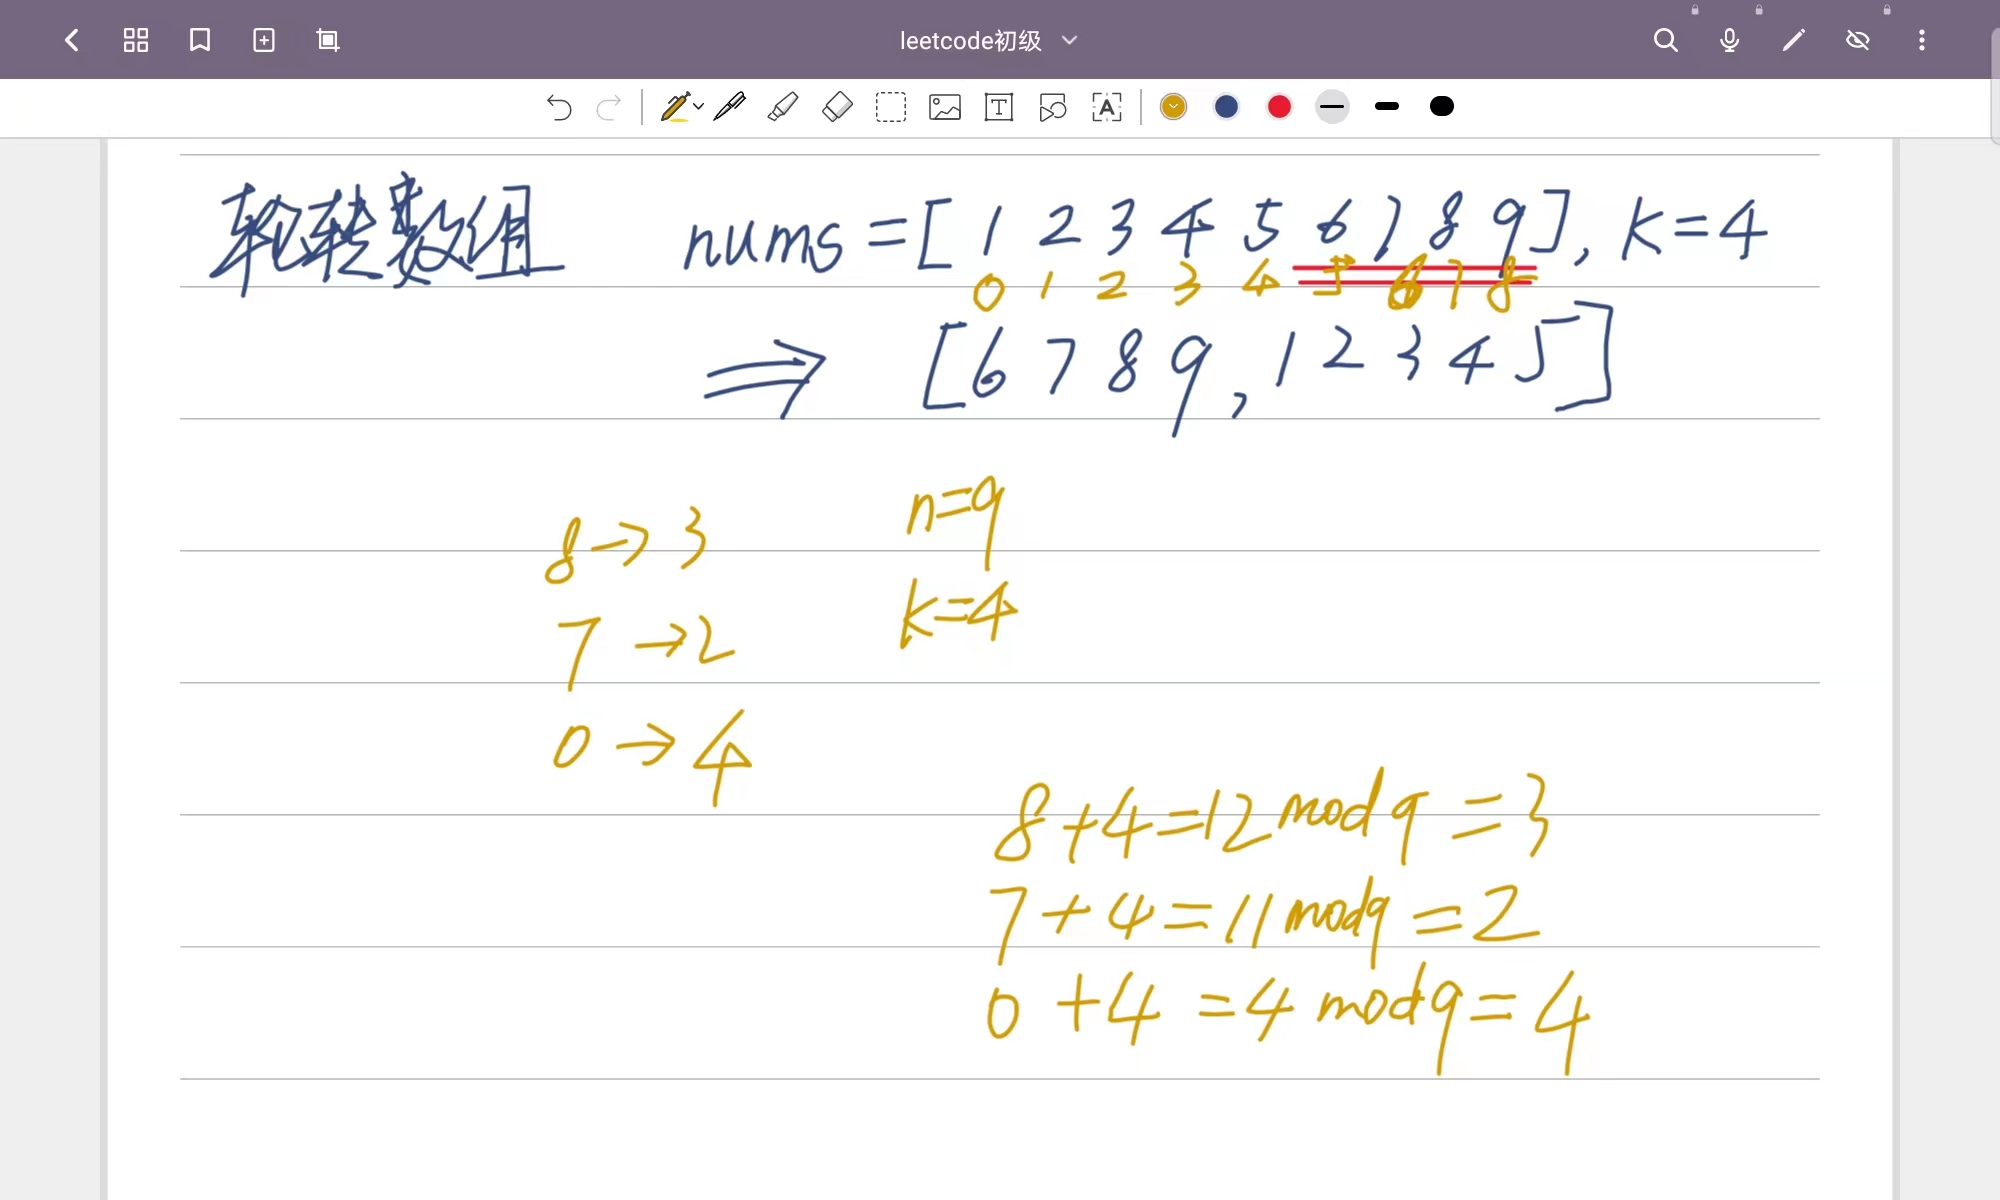 leetcode初级
轮转数组 nums = [ 1 2 3 4 5 6 7 8 9 ], k = 4
0 1 2 3 4 5 6 7 8
⇒ [ 6 7 8 9 , 1 2 3 4 5 ]
n=9
8 → 3
k=4
7 → 2
0 → 4
8+4=12 mod 9 = 3
7+4=11 mod 9 = 2
0+4=4 mod 9 = 4